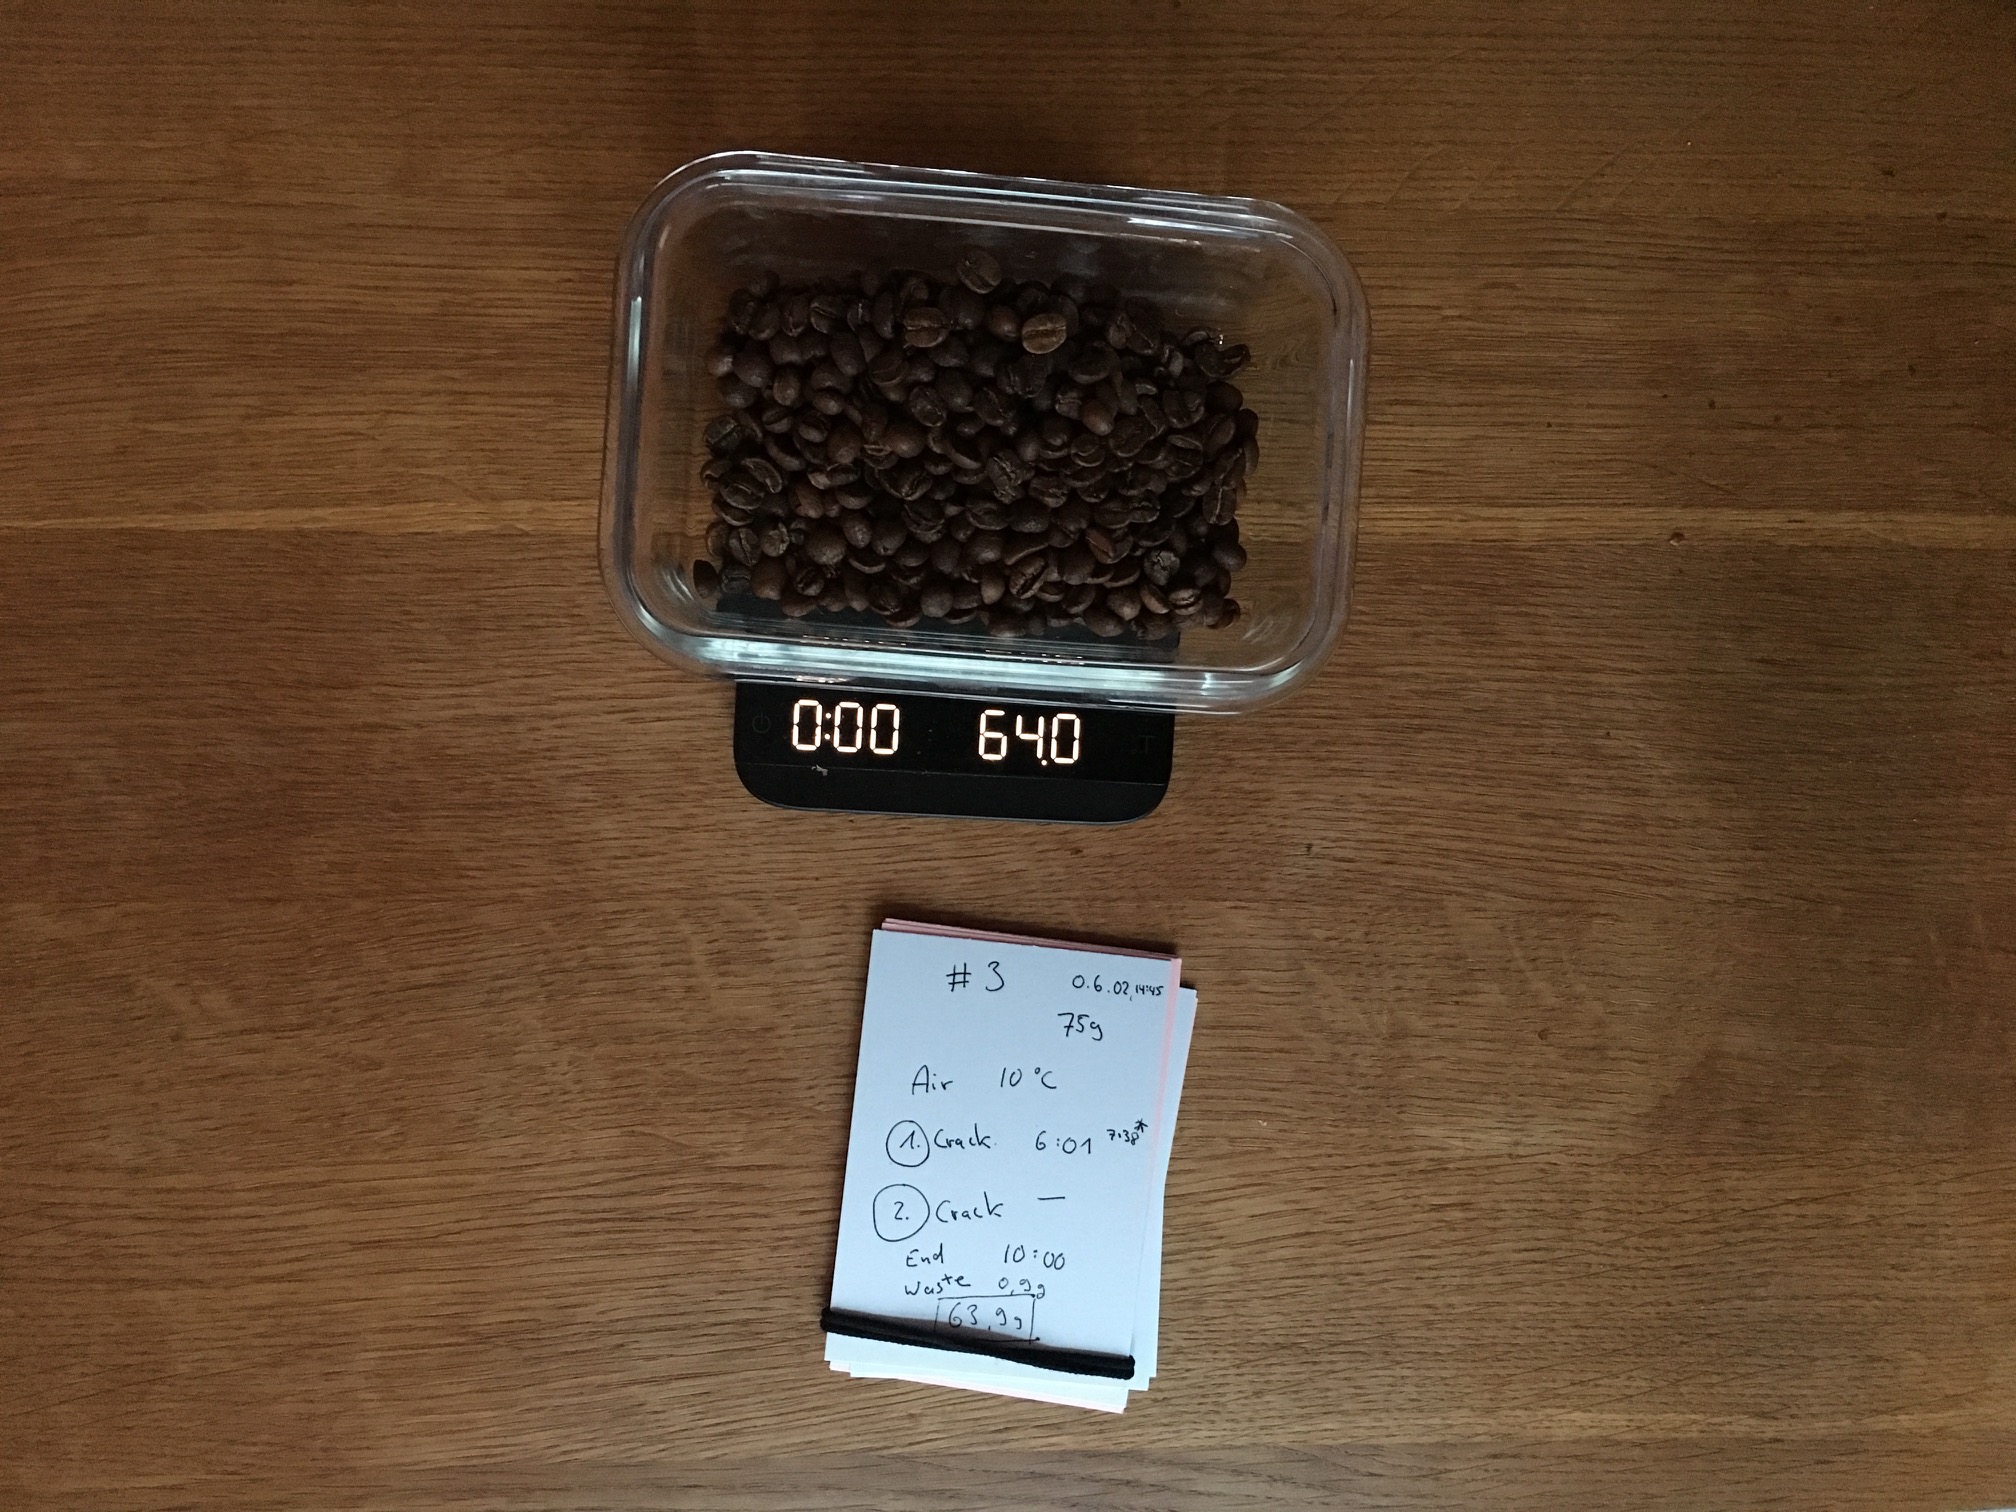 0:00 64.0
# 3 0.6.02, 14:45
75g
Air 10°C
1. Crack 6:01 7:38*
2. Crack —
End 10:00
Waste 0,9g
63,9g